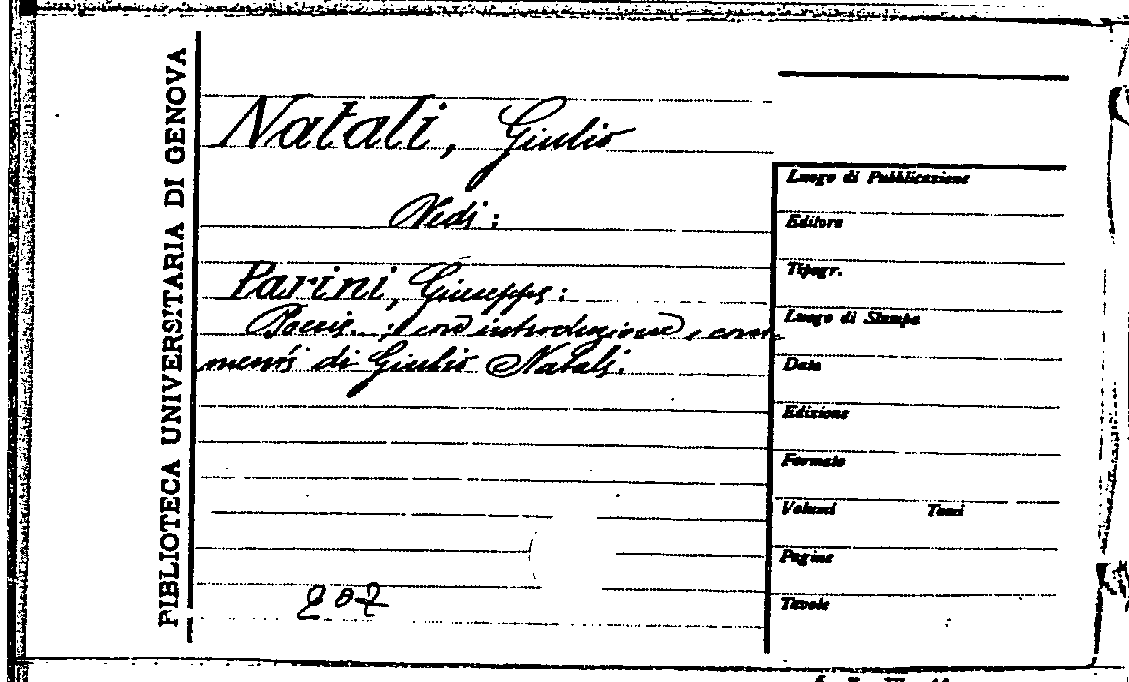 BIBLIOTECA UNIVERSITARIA DI GENOVA
Natali, Giulio
Vedi:
Parini, Giuseppe:
Poesie. : con introduzione e com-
menti di Giulio Natali.
207
Luogo di Pubblicazione
Editore
Tipogr.
Luogo di Stampa
Data
Edizione
Formato
Volumi Tomi
Pagine
Tavole